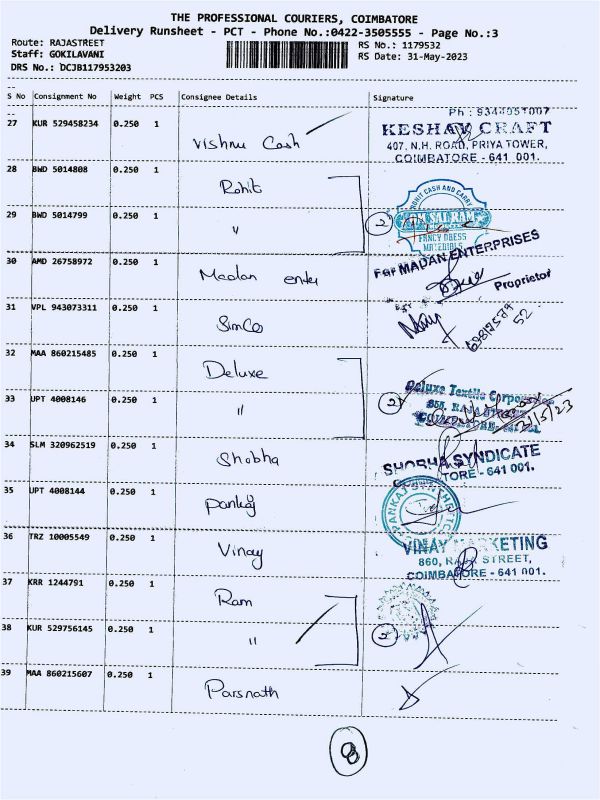 THE PROFESSIONAL COURIERS, COIMBATORE
Delivery Runsheet - PCT - Phone No.:0422-3505555 - Page No.:3
Route: RAJASTREET
Staff: GOKILAVANI
DRS No.: DCJB117953203
RS No.: 1179532
RS Date: 31-May-2023
S No Consignment No Weight PCS Consignee Details Signature
27 KUR 529458234 0.250 1 Vishnu Cash
Ph: 9344951007
KESHAV CRAFT
407, N.H. ROAD, PRIYA TOWER,
COIMBATORE - 641 001.
28 BWD 5014808 0.250 1 Rohit
29 BWD 5014799 0.250 1 "
2
ROHIT CASH AND CARRY
FANCY DRESS
MATERIALS
30 AMD 26758972 0.250 1 Madan enter
For MADAN ENTERPRISES
Proprietor
31 VPL 943073311 0.250 1 SimCo
52
32 MAA 860215485 0.250 1 Deluxe
33 UPT 4008146 0.250 1 "
2
Deluxe Textile
31/5/23
34 SLM 320962519 0.250 1 Shobha
SHOBHA SYNDICATE
COIMBATORE - 641 001.
35 UPT 4008144 0.250 1 Pankaj
PANKAJ SYNTHETIC
36 TRZ 10005549 0.250 1 Vinay
VINAY MARKETING
860, RAJA STREET,
COIMBATORE - 641 001.
37 KRR 1244791 0.250 1 Ram
38 KUR 529756145 0.250 1 "
2
39 MAA 860215607 0.250 1 Parsnath
8